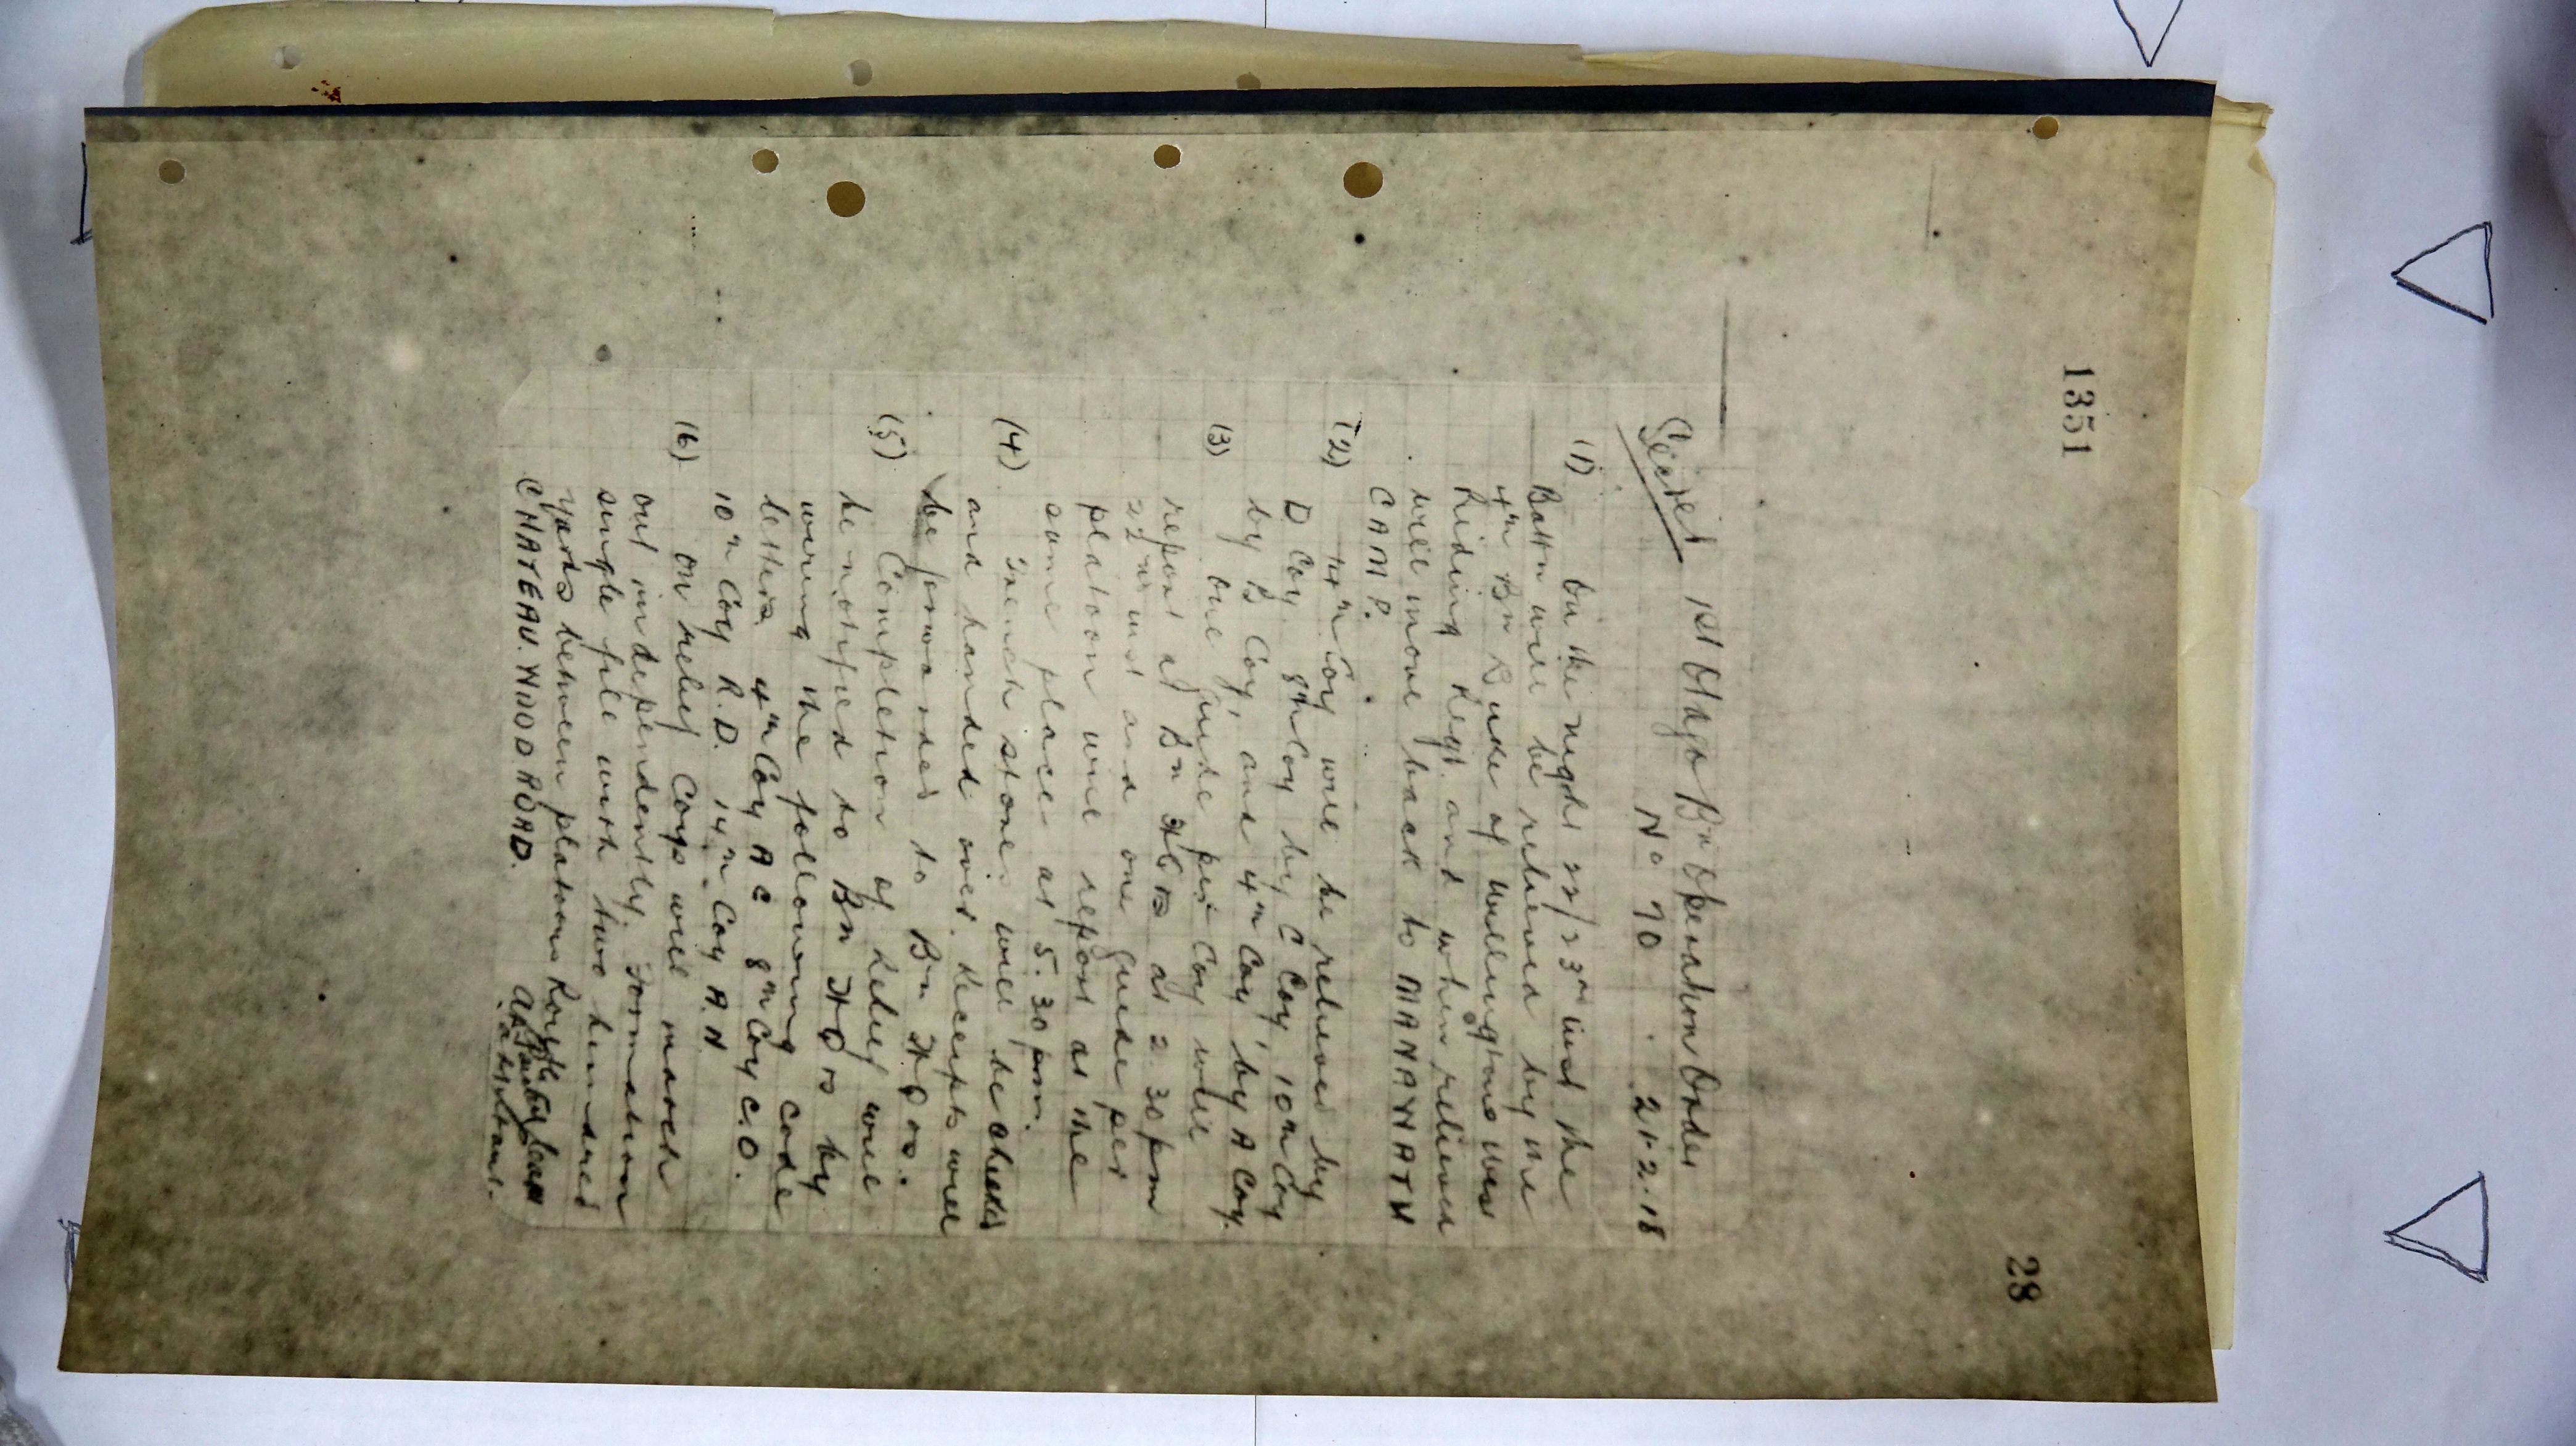 1351
28
Secret 1st Otago Bn Operation Order
No 70. 21.2.18
(1) On the night 22/23rd inst the
Battn will be relieved by the
4th Bn Duke of Wellingtons West
Riding Regt. and when relieved
will move back to MANAWATU
CAMP.
(2) 14th Coy will be relieved by
D Coy, 8th Coy by C Coy, 10th Coy
by B Coy, and 4th Coy by A Coy.
(3) One Guide per Coy will
report at Bn HQrs at 2.30 pm
22nd inst and one Guide per
platoon will report at the
same place at 5.30 pm.
(4) Trench stores will be checked
and handed over. Receipts will
be forwarded to Bn HQrs.
(5) Completion of Relief will
be notified to Bn HQrs by
wiring the following code
letters 4th Coy A C 8th Coy C.O.
10th Coy R.D. 14th Coy A.N
(6) On relief Coys will march
out independently. Formation
single file with two hundred
yards between platoons Route
CHATEAU. WOOD ROAD.
Capt
Adjutant.